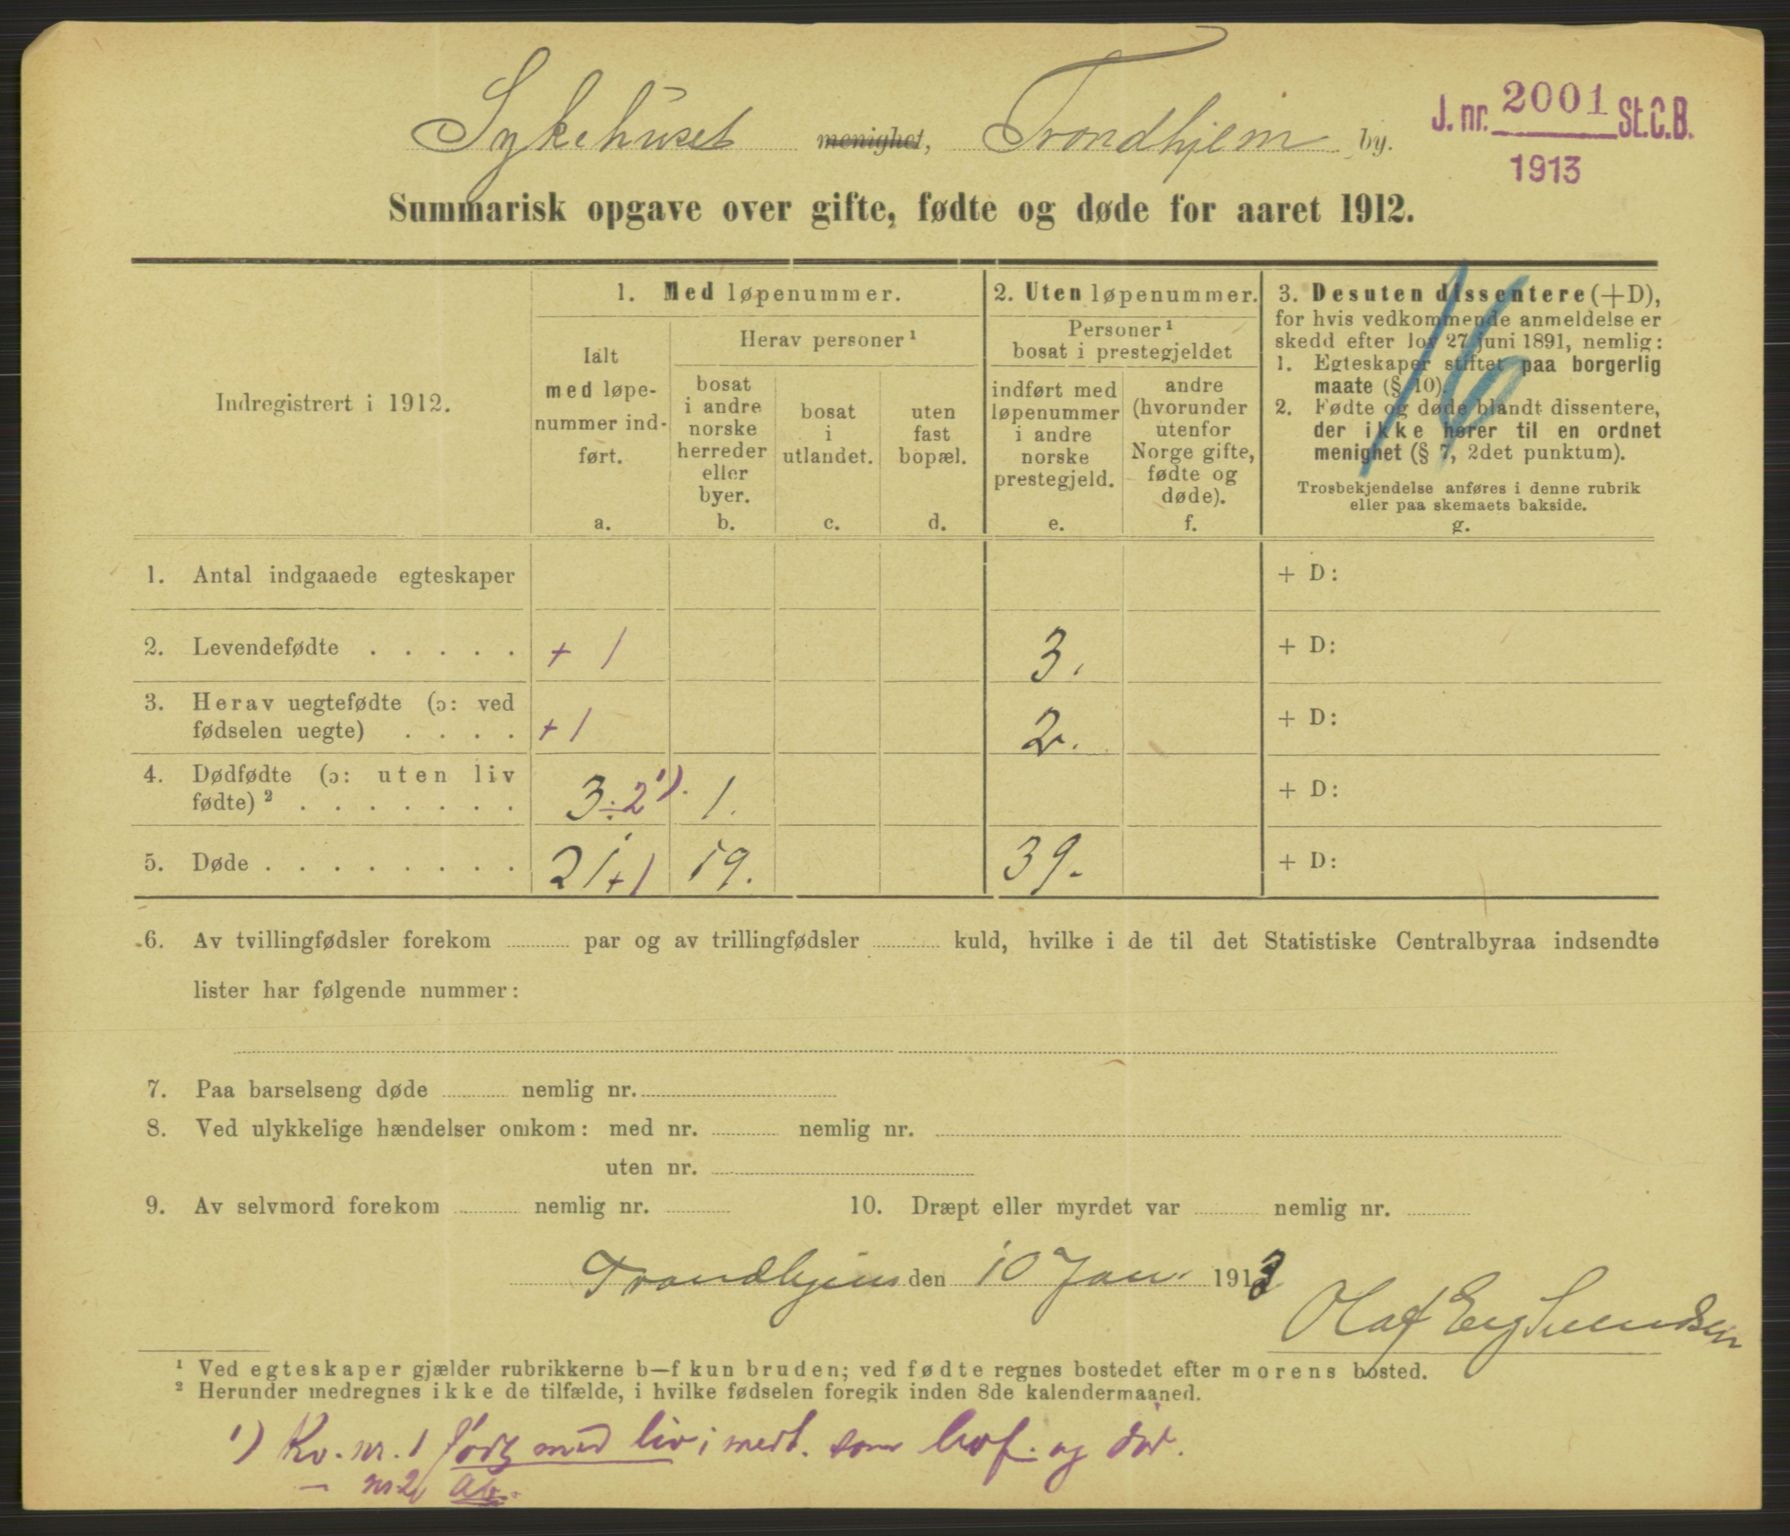 Sykehuset menighet, Trondhjem by.
J. nr. 2001 St.C.B.
1913
Summarisk opgave over gifte, fødte og døde for aaret 1912.
Indregistrert i 1912.
1. Med løpenummer.
Ialt
med løpe-
nummer ind-
ført.
a.
Herav personer ¹
bosat
i andre
norske
herreder
eller
byer.
b.
bosat
i
utlandet.
c.
uten
fast
bopæl.
d.
2. Uten løpenummer.
Personer ¹
bosat i prestegjeldet
indført med
løpenummer
i andre
norske
prestegjeld.
e.
andre
(hvorunder
utenfor
Norge gifte,
fødte og
døde).
f.
3. Desuten dissentere (+D),
for hvis vedkommende anmeldelse er
skedd efter lov 27 juni 1891, nemlig:
1. Egteskaper stiftet paa borgerlig
maate (§ 10).
2. Fødte og døde blandt dissentere,
der ikke hører til en ordnet
menighet (§ 7, 2det punktum).
Trosbekjendelse anføres i denne rubrik
eller paa skemaets bakside.
g.
16
1. Antal indgaaede egteskaper + D:
2. Levendefødte . . . . . + 1 3. + D:
3. Herav uegtefødte (ɔ: ved
fødselen uegte) . . . . + 1 2. + D:
4. Dødfødte (ɔ: uten liv
fødte) ² . . . . . . . 3 ÷ 2 ¹). 1. + D:
5. Døde . . . . . . . . 21 + 1 19. 39. + D:
6. Av tvillingfødsler forekom par og av trillingfødsler kuld, hvilke i de til det Statistiske Centralbyraa indsendte
lister har følgende nummer:
7. Paa barselseng døde nemlig nr.
8. Ved ulykkelige hændelser omkom: med nr. nemlig nr.
uten nr.
9. Av selvmord forekom nemlig nr. 10. Dræpt eller myrdet var nemlig nr.
Trondhjem den 10 Jan. 1913
Olaf
¹ Ved egteskaper gjælder rubrikkerne b—f kun bruden; ved fødte regnes bostedet efter morens bosted.
² Herunder medregnes ikke de tilfælde, i hvilke fødselen foregik inden 8de kalendermaaned.
¹) Kv. nr. 1 født med liv; medt. som levf. og død.
— nr 2 Ab.